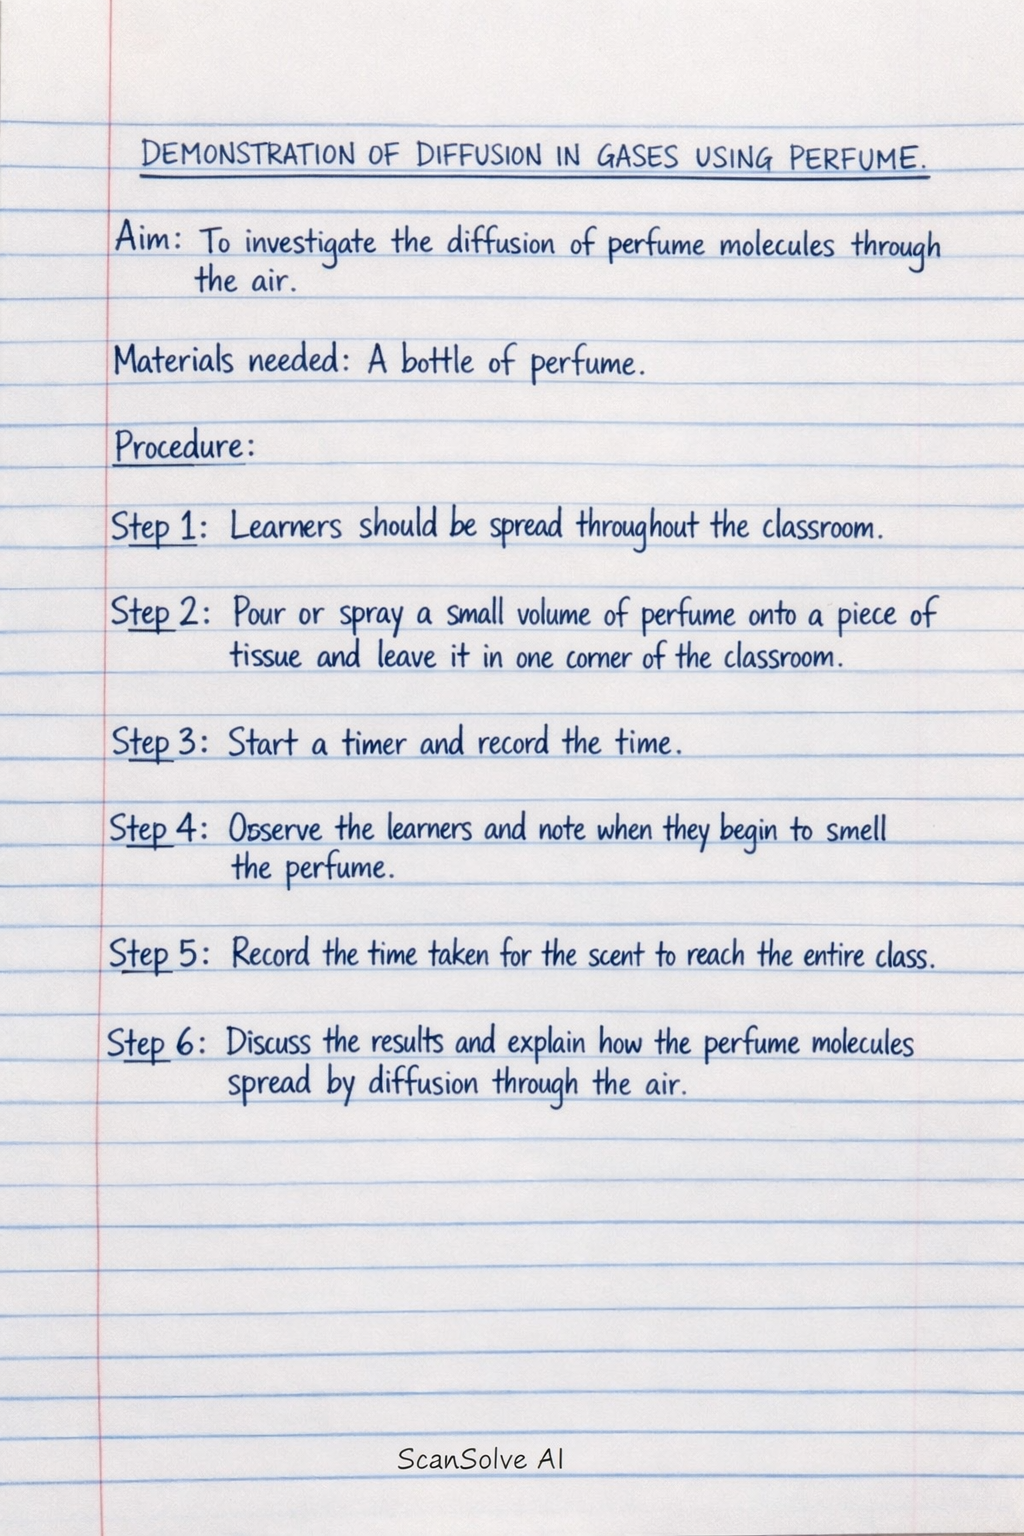 DEMONSTRATION OF DIFFUSION IN GASES USING PERFUME.
Aim: To investigate the diffusion of perfume molecules through
the air.
Materials needed: A bottle of perfume.
Procedure:
Step 1: Learners should be spread throughout the classroom.
Step 2: Pour or spray a small volume of perfume onto a piece of
tissue and leave it in one corner of the classroom.
Step 3: Start a timer and record the time.
Step 4: Observe the learners and note when they begin to smell
the perfume.
Step 5: Record the time taken for the scent to reach the entire class.
Step 6: Discuss the results and explain how the perfume molecules
spread by diffusion through the air.
ScanSolve AI